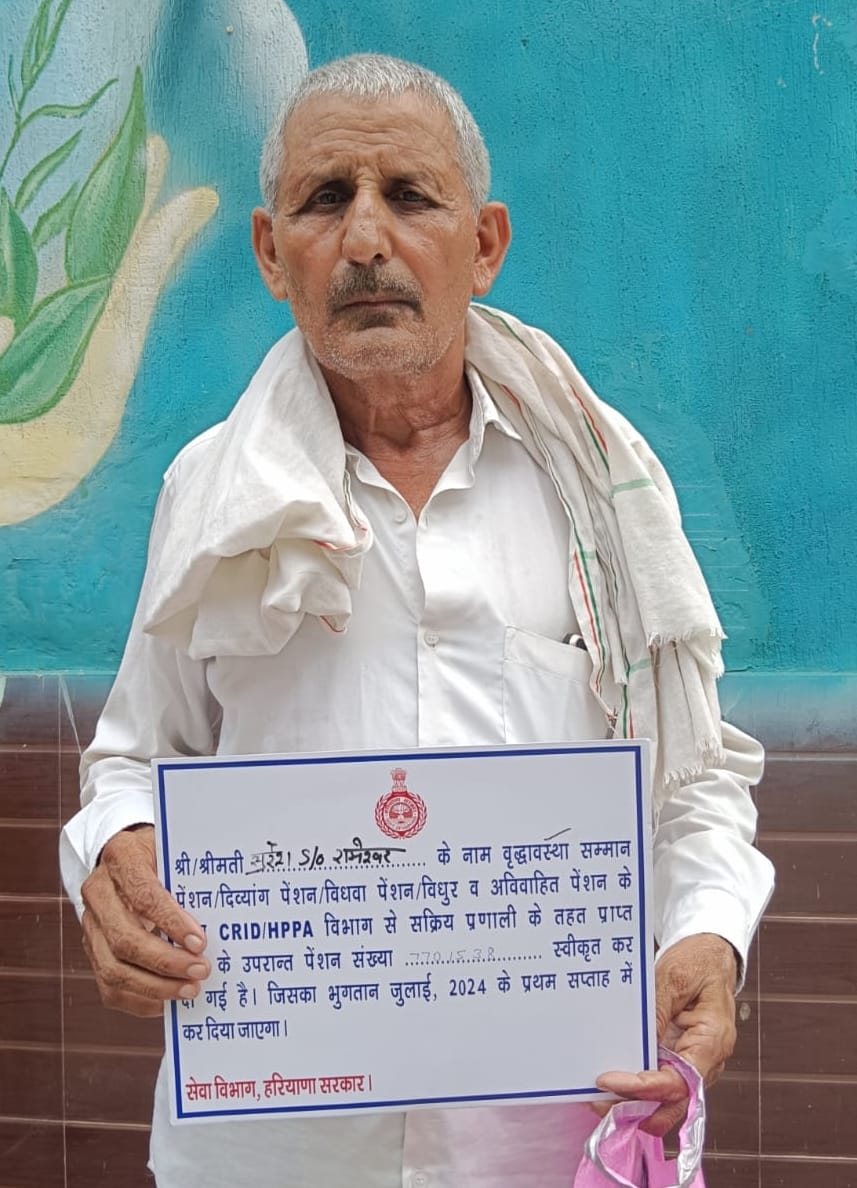 श्री/श्रीमती सुरेश S/o रामेश्वर के नाम वृद्धावस्था सम्मान
पेंशन/दिव्यांग पेंशन/विधवा पेंशन/विधुर व अविवाहित पेंशन के
CRID/HPPA विभाग से सक्रिय प्रणाली के तहत प्राप्त
के उपरान्त पेंशन संख्या स्वीकृत कर
दी गई है। जिसका भुगतान जुलाई, 2024 के प्रथम सप्ताह में
कर दिया जाएगा।
सेवा विभाग, हरियाणा सरकार।